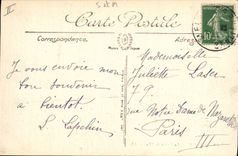 II
Carte Postale
Correspondance
Adresse
10
Mademoiselle
Juliette Laser
79
Rue Notre Dame de Nazareth
Paris
III
Je vous envoie mon
bon souvenir
a bientot.